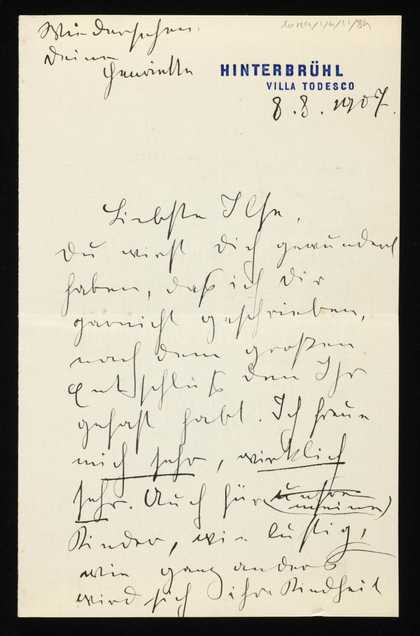 Wiedersehen.
Deine
Henriette
HINTERBRÜHL
VILLA TODESCO
8. 8. 1907.
Liebste Ilse,
Du wirst Dich gewundert
haben, daß ich Dir
garnicht geschrieben,
nach dem großen
Entschluß den Ihr
gefaßt habt. Ich freue
mich sehr, wirklich
sehr. Auch für (unsre
meine)
Kinder, wie lustig,
wie ganz anders
wird sich ihre Kindheit